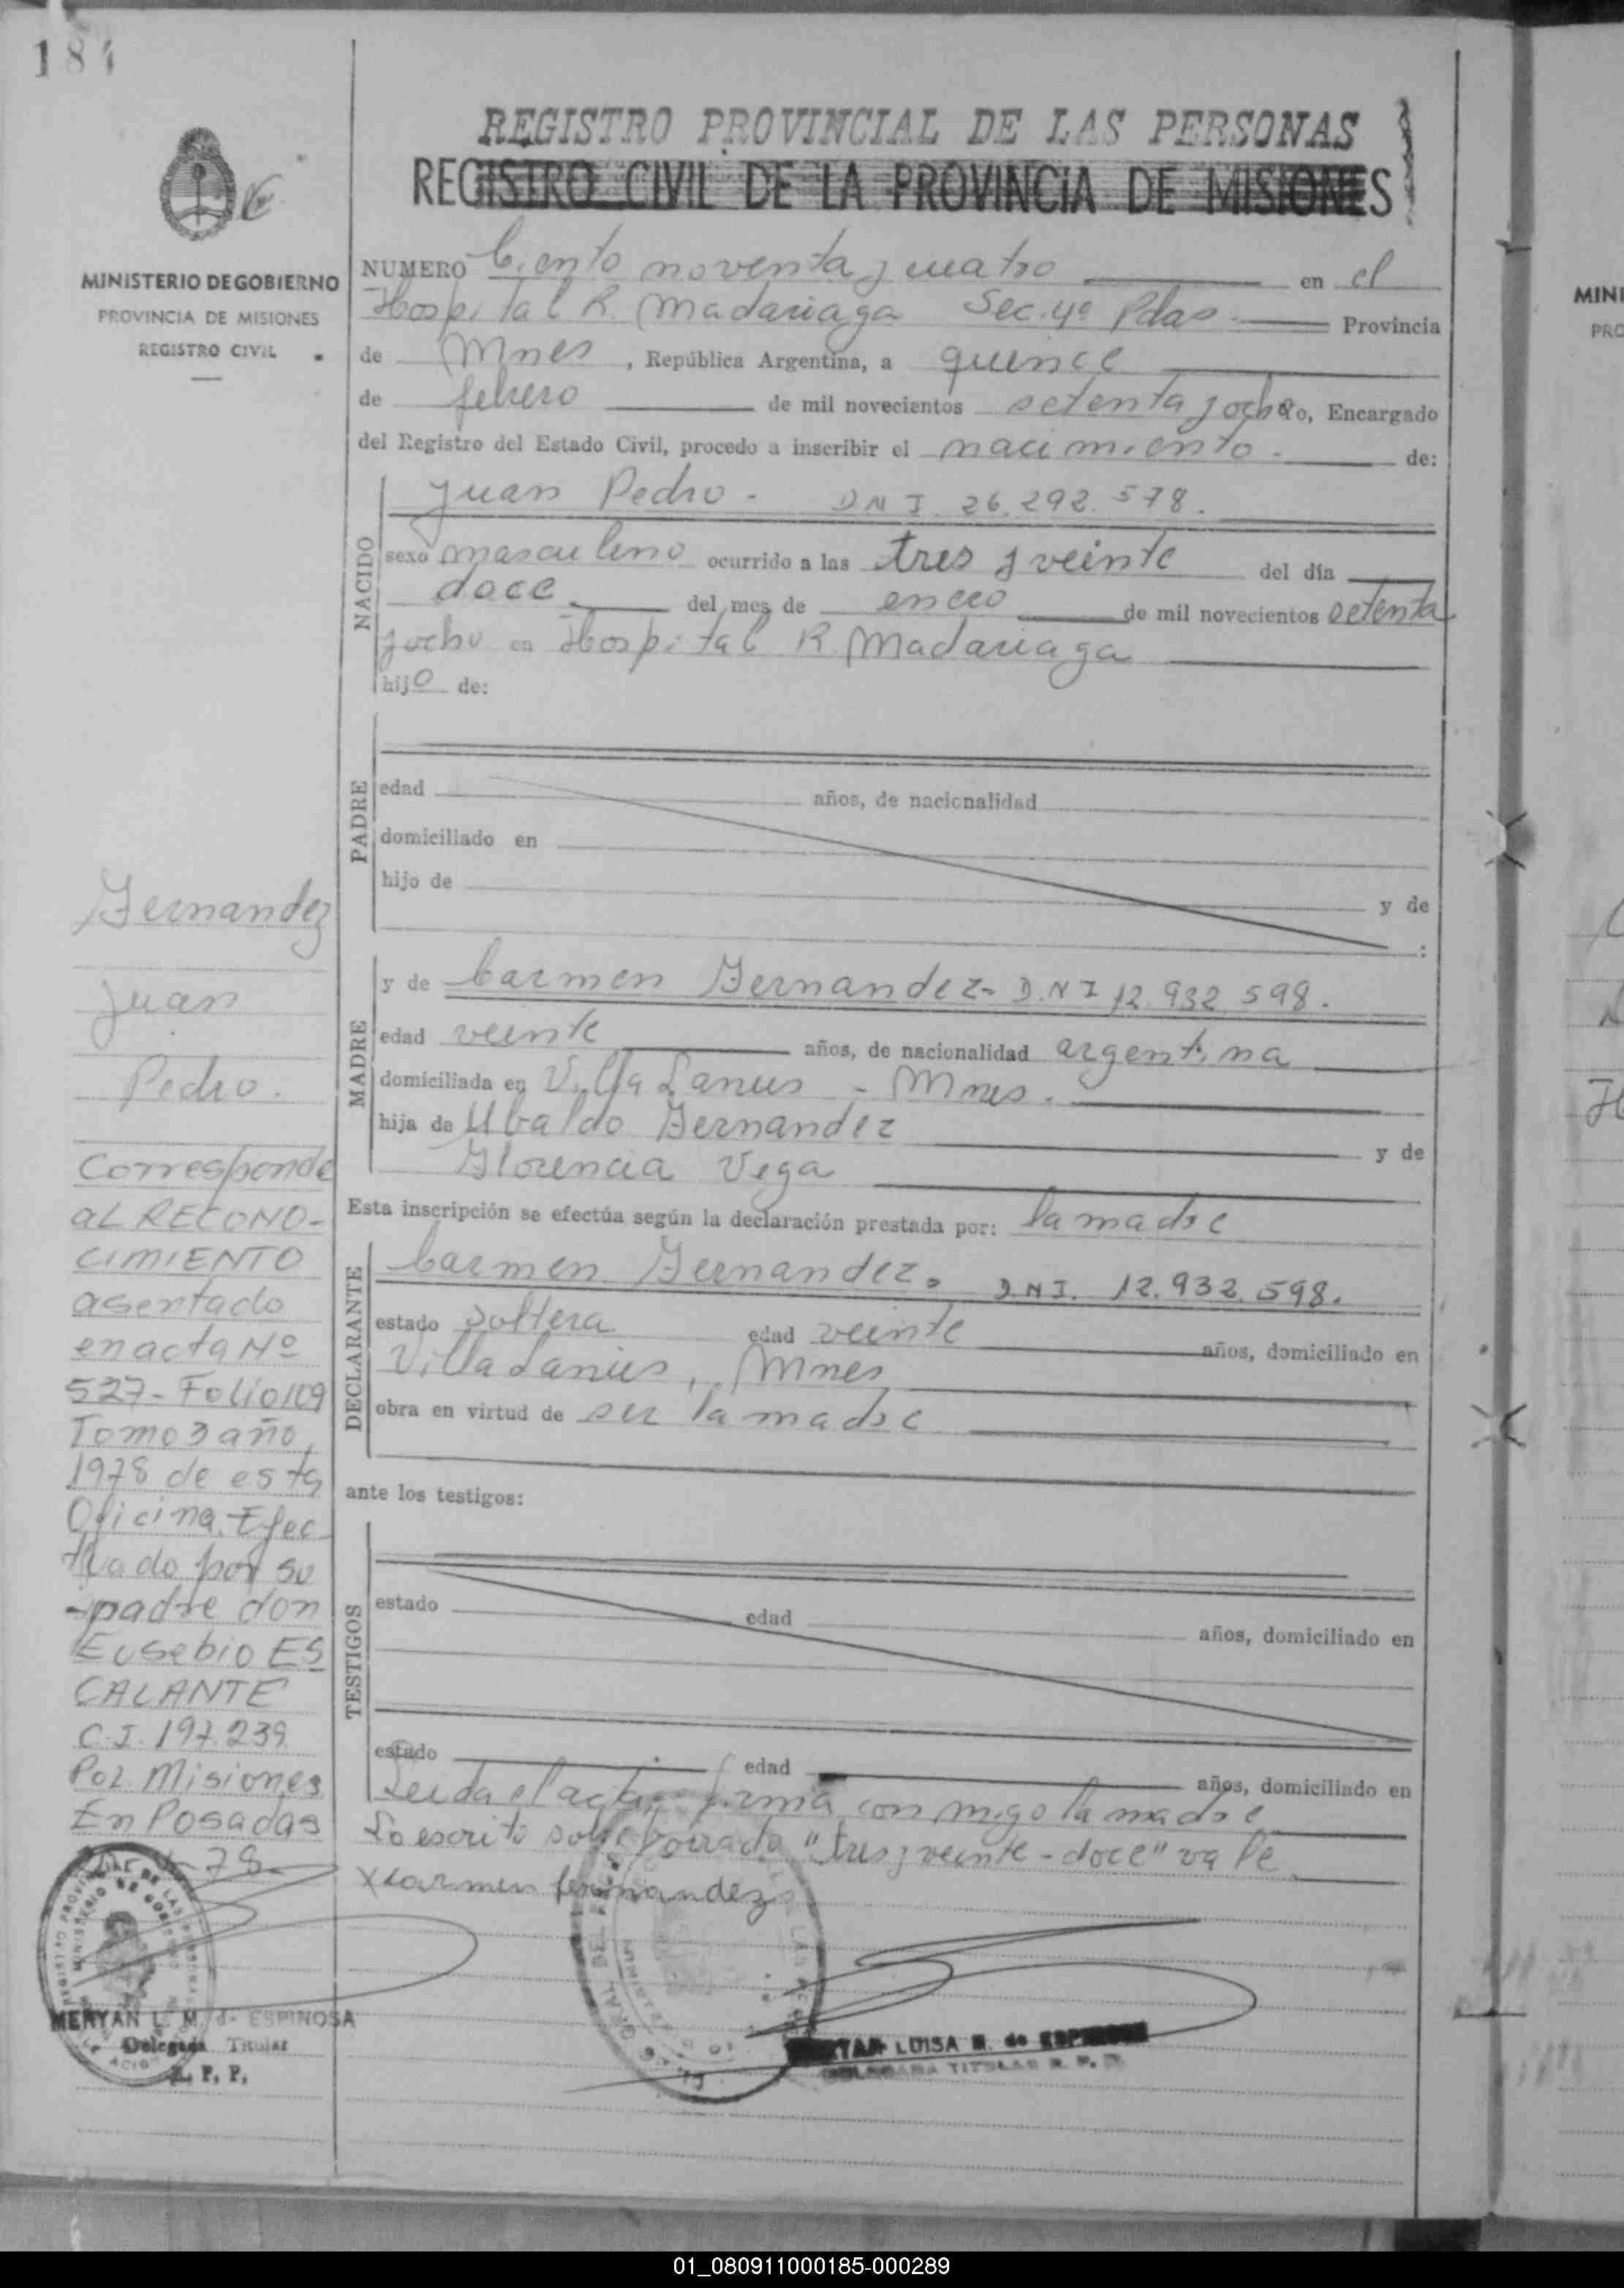 184
REGISTRO PROVINCIAL DE LAS PERSONAS
REGISTRO CIVIL DE LA PROVINCIA DE MISIONES
MINISTERIO DE GOBIERNO
PROVINCIA DE MISIONES
REGISTRO CIVIL
NUMERO Ciento noventa y cuatro en el
Hospital R. Madariaga Sec. 4º Pdas. Provincia
de Mnes, República Argentina, a quince
de febrero de mil novecientos setenta y ocho Yo, Encargado
del Registro del Estado Civil, procedo a inscribir el nacimiento. de:
NACIDO
Juan Pedro. DNI 26.292.578.
sexo masculino ocurrido a las tres y veinte del día
doce del mes de enero de mil novecientos setenta
y ocho en Hospital R. Madariaga
hijo de:
PADRE
edad años, de nacionalidad
domiciliado en
hijo de y de
:
MADRE
y de Carmen Fernandez- D.N.I 12.932.598.
edad veinte años, de nacionalidad argentina
domiciliada en Villa Lanus - Mnes.
hija de Ubaldo Fernandez y de
Florencia Vega
Esta inscripción se efectúa según la declaración prestada por: la madre
DECLARANTE
Carmen Fernandez. D.N.I. 12.932.598.
estado soltera edad veinte años, domiciliado en
Villa Lanus, Mnes
obra en virtud de ser la madre
ante los testigos:
TESTIGOS
estado edad años, domiciliado en
estado edad años, domiciliado en
Leida el acta firma con migo la madre
Lo escrito sobre borrado "tres y veinte - doce" vale
x carmen fernandez
LUISA M. de ESPINOSA
DELEGADA TITULAR R. P. P.
Fernandez
Juan
Pedro.
Corresponde
al RECONO-
CIMIENTO
asentado
en acta Nº
527- Folio 109
Tomo 3 año,
1978 de esta
Oficina. Efec-
tuado por su
-padre don
Eusebio ES
CALANTE
C.I. 197.239
Pol. Misiones
En Posadas
78-
MERYAN L. M. de ESPINOSA
Delegada Titular
R. P. P.
MINI
PRO
01_080911000185-000289